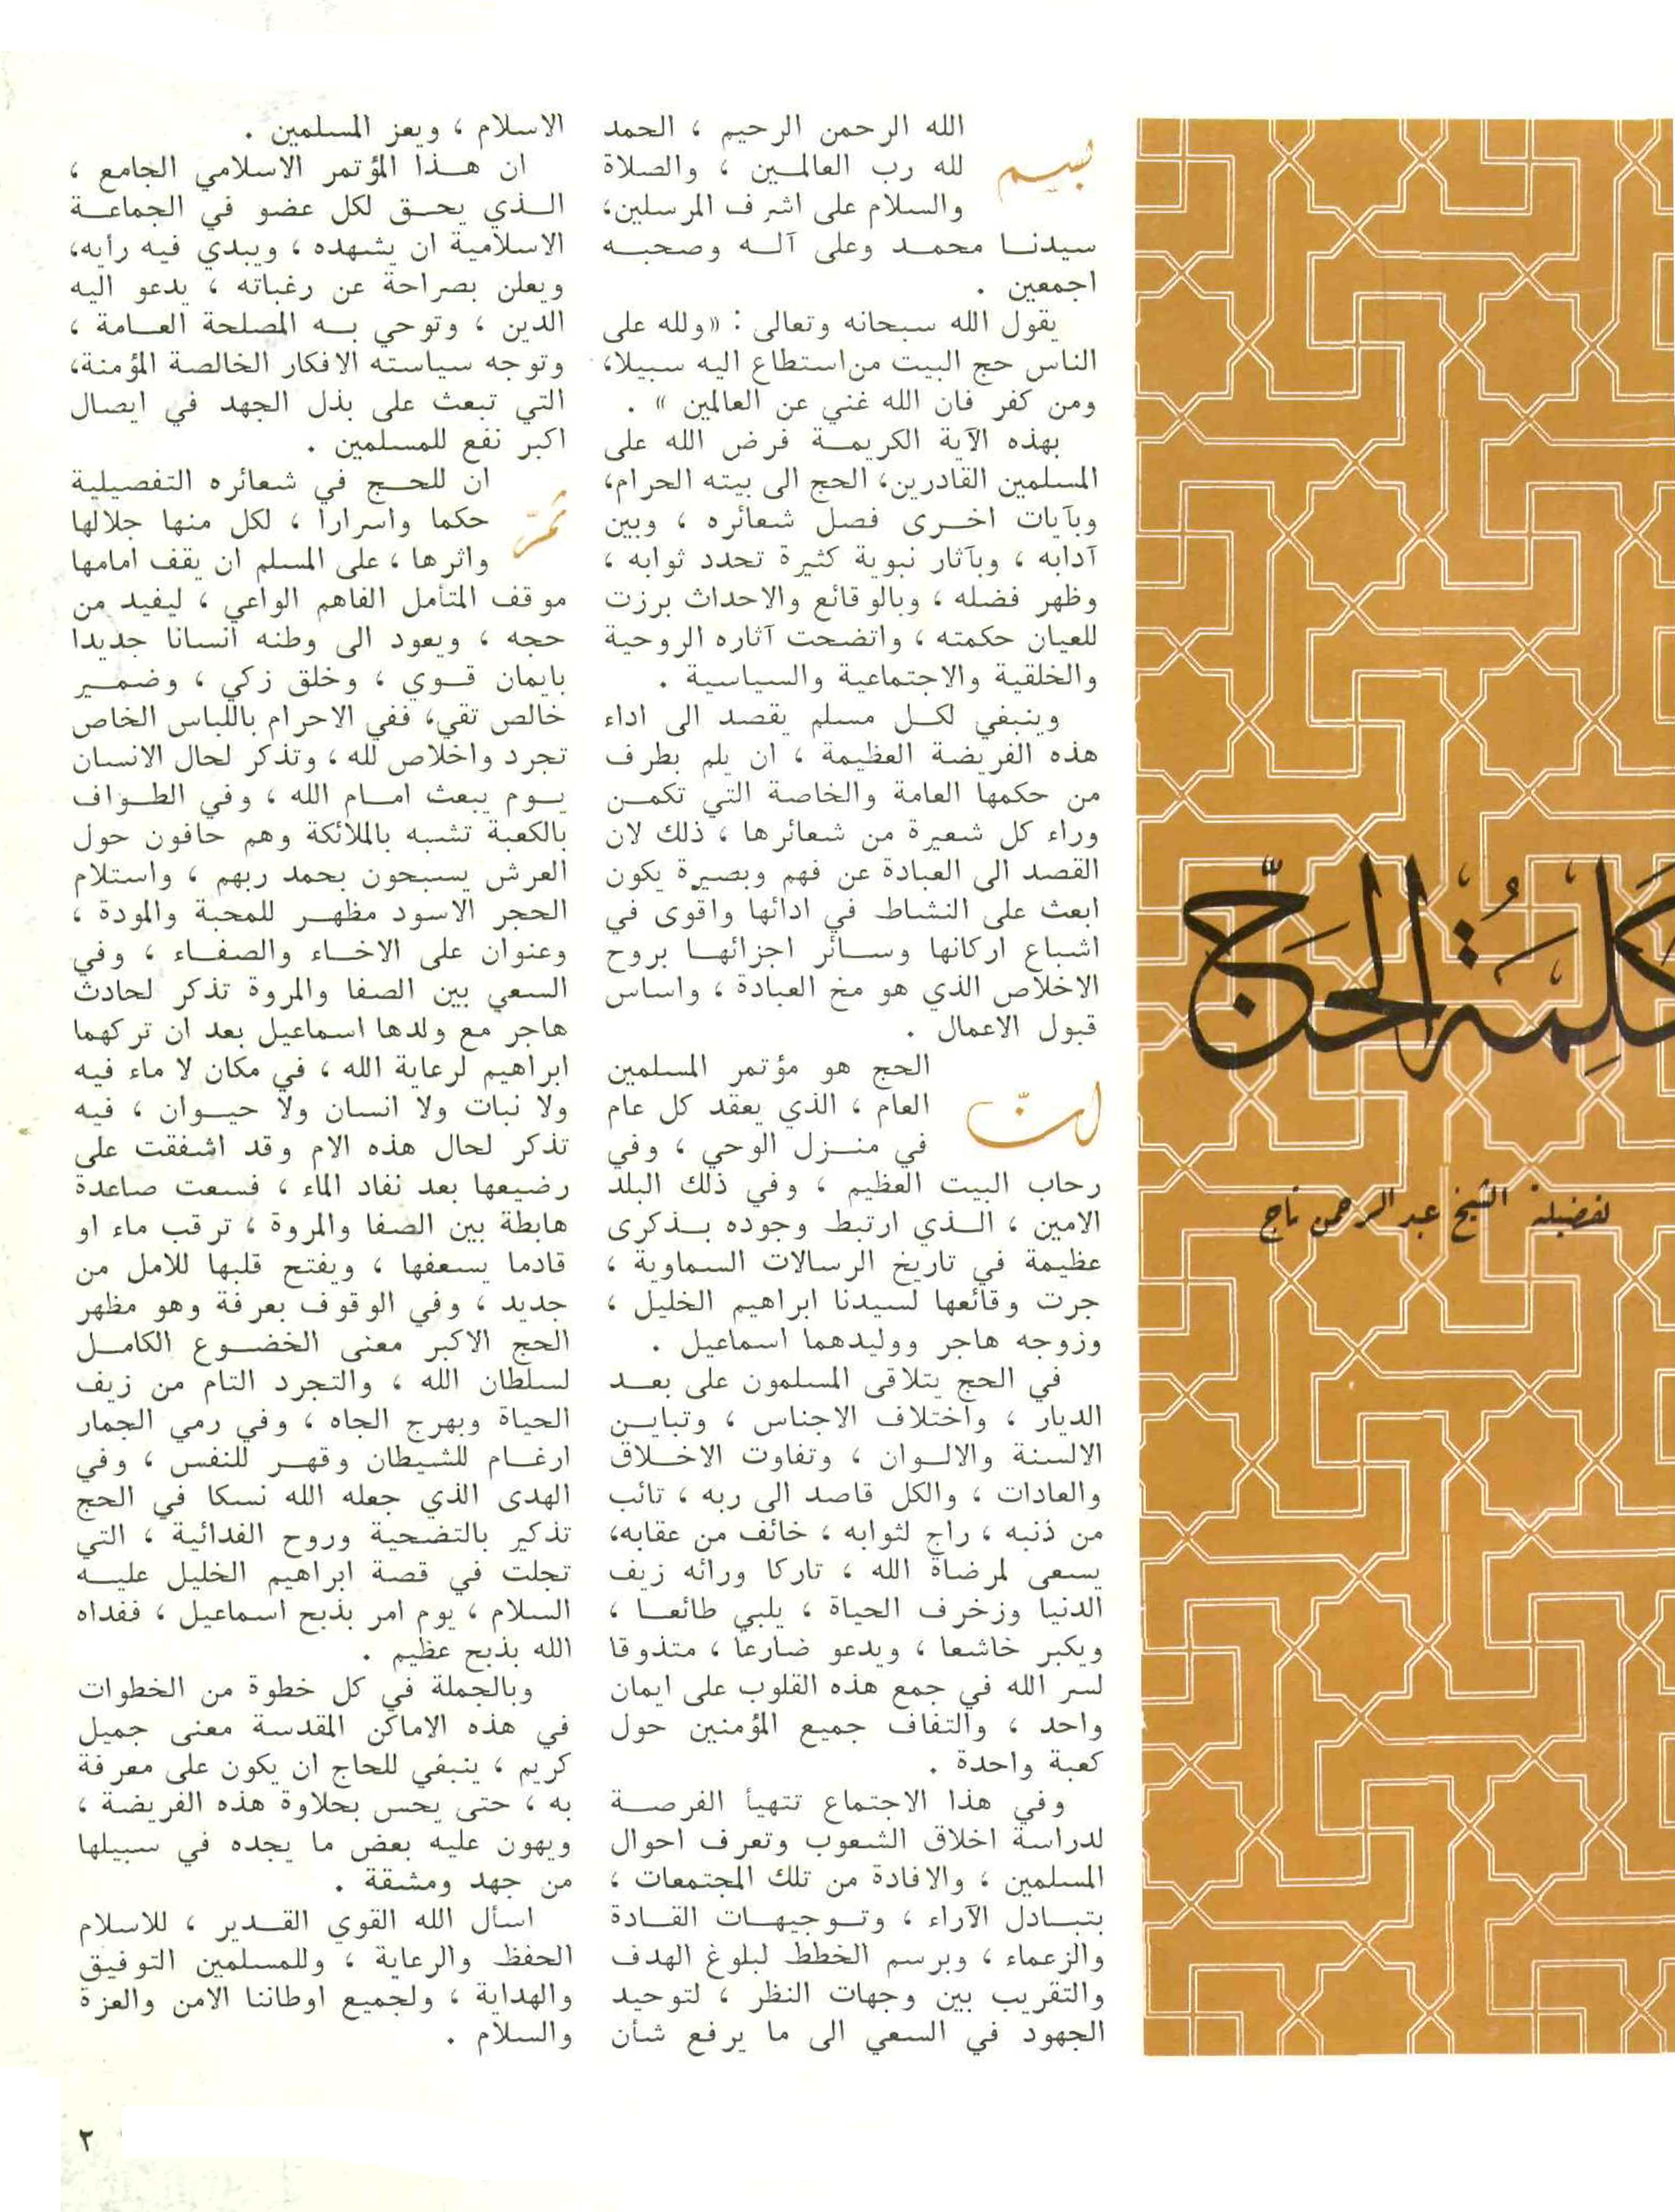 كَلِمَةُ الحَجّ
لفضيلة الشيخ عبد الرحمن تاج
بسيم الله الرحمن الرحيم ، الحمد
لله رب العالمـين ، والصلاة
والسلام على اشرف المرسلين،
سيدنـا محمـد وعلى آلـه وصحبـه
اجمعين .
يقول الله سبحانه وتعالى : «ولله على
الناس حج البيت من استطاع اليه سبيلا،
ومن كفر فان الله غني عن العالمين » .
بهذه الآية الكريمـة فرض الله على
المسلمين القادرين، الحج الى بيته الحرام،
وبآيات اخـرى فصل شعائره ، وبين
آدابه ، وبآثار نبوية كثيرة تحدد ثوابه ،
وظهر فضله ، وبالوقائع والاحداث برزت
للعيان حكمته ، واتضحت آثاره الروحية
والخلقية والاجتماعية والسياسية .
وينبغي لكـل مسلم يقصد الى اداء
هذه الفريضة العظيمة ، ان يلم بطرف
من حكمها العامة والخاصة التي تكمـن
وراء كل شعيرة من شعائرها ، ذلك لان
القصد الى العبادة عن فهم وبصيرة يكون
ابعث على النشاط في ادائها واقوى في
اشباع اركانها وسـائر اجزائهـا بروح
الاخلاص الذي هو مخ العبادة ، واساس
قبول الاعمال .
انّ الحج هو مؤتمر المسلمين
العام ، الذي يعقد كل عام
في منـزل الوحي ، وفي
رحاب البيت العظيم ، وفي ذلك البلد
الامين ، الـذي ارتبط وجوده بـذكرى
عظيمة في تاريخ الرسالات السماوية ،
جرت وقائعها لسيدنا ابراهيم الخليل ،
وزوجه هاجر ووليدهما اسماعيل .
في الحج يتلاقى المسلمون على بعـد
الديار ، واختلاف الاجناس ، وتبايـن
الالسنة والالـوان ، وتفاوت الاخـلاق
والعادات ، والكل قاصد الى ربه ، تائب
من ذنبه ، راج لثوابه ، خائف من عقابه،
يسعى لمرضاة الله ، تاركا ورائه زيف
الدنيا وزخرف الحياة ، يلبي طائعـا ،
ويكبر خاشعا ، ويدعو ضارعا ، متذوقا
لسر الله في جمع هذه القلوب على ايمان
واحد ، والتفاف جميع المؤمنين حول
كعبة واحدة .
وفي هذا الاجتماع تتهيأ الفرصـة
لدراسة اخلاق الشعوب وتعرف احوال
المسلمين ، والافادة من تلك المجتمعات ،
بتبـادل الآراء ، وتـوجيهـات القـادة
والزعماء ، وبرسم الخطط لبلوغ الهدف
والتقريب بين وجهات النظر ، لتوحيد
الجهود في السعي الى ما يرفع شأن
الاسلام ، ويعز المسلمين .
ان هـذا المؤتمر الاسلامي الجامع ،
الـذي يحـق لكل عضو في الجماعـة
الاسلامية ان يشهده ، ويبدي فيه رأيه،
ويعلن بصراحة عن رغباته ، يدعو اليه
الدين ، وتوحي بـه المصلحة العـامة ،
وتوجه سياسته الافكار الخالصة المؤمنة،
التي تبعث على بذل الجهد في ايصال
اكبر نفع للمسلمين .
ثمّ ان للحـج في شعائره التفصيلية
حكما واسرارا ، لكل منها جلالها
واثرها ، على المسلم ان يقف امامها
موقف المتأمل الفاهم الواعي ، ليفيد من
حجه ، ويعود الى وطنه انسانا جديدا
بايمان قـوي ، وخلق زكي ، وضمـير
خالص تقي، ففي الاحرام باللباس الخاص
تجرد واخلاص لله ، وتذكر لحال الانسان
يـوم يبعث امـام الله ، وفي الطـواف
بالكعبة تشبه بالملائكة وهم حافون حول
العرش يسبحون بحمد ربهم ، واستلام
الحجر الاسود مظهـر للمحبة والمودة ،
وعنوان على الاخـاء والصفـاء ، وفي
السعي بين الصفا والمروة تذكر لحادث
هاجر مع ولدها اسماعيل بعد ان تركهما
ابراهيم لرعاية الله ، في مكان لا ماء فيه
ولا نبات ولا انسان ولا حيـوان ، فيه
تذكر لحال هذه الام وقد اشفقت على
رضيعها بعد نفاد الماء ، فسعت صاعدة
هابطة بين الصفا والمروة ، ترقب ماء او
قادما يسعفها ، ويفتح قلبها للامل من
جديد ، وفي الوقوف بعرفة وهو مظهر
الحج الاكبر معنى الخضـوع الكامـل
لسلطان الله ، والتجرد التام من زيف
الحياة وبهرج الجاه ، وفي رمي الجمار
ارغـام للشيطان وقهـر للنفس ، وفي
الهدى الذي جعله الله نسكا في الحج
تذكير بالتضحية وروح الفدائية ، التي
تجلت في قصة ابراهيم الخليل عليـه
السلام ، يوم امر بذبح اسماعيل ، ففداه
الله بذبح عظيم .
وبالجملة في كل خطوة من الخطوات
في هذه الاماكن المقدسة معنى جميل
كريم ، ينبغي للحاج ان يكون على معرفة
به ، حتى يحس بحلاوة هذه الفريضة ،
ويهون عليه بعض ما يجده في سبيلها
من جهد ومشقة .
اسأل الله القوي القـدير ، للاسلام
الحفظ والرعاية ، وللمسلمين التوفيق
والهداية ، ولجميع اوطاننا الامن والعزة
والسلام .
٢